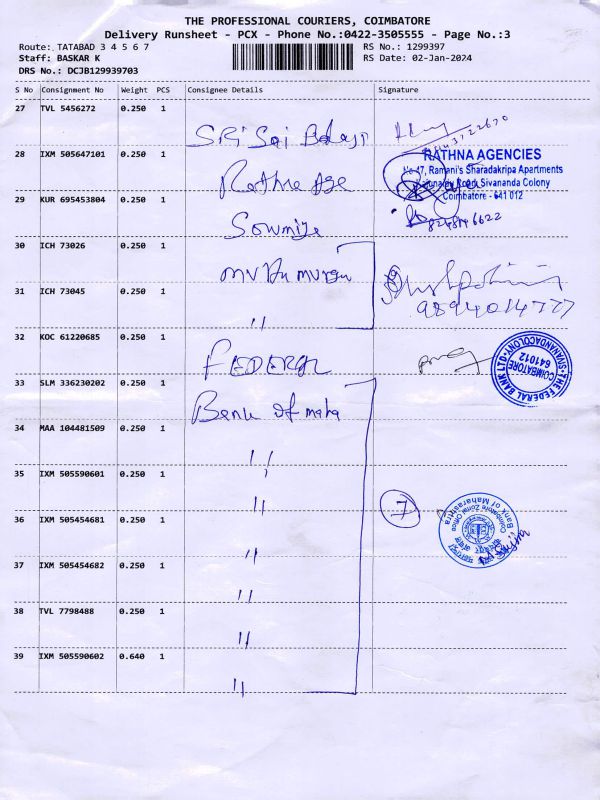 THE PROFESSIONAL COURIERS, COIMBATORE
Delivery Runsheet - PCX - Phone No.:0422-3505555 - Page No.:3
Route: TATABAD 3 4 5 6 7 RS No.: 1299397
Staff: BASKAR K RS Date: 02-Jan-2024
DRS No.: DCJB129939703
S No Consignment No Weight PCS Consignee Details Signature
27 TVL 5456272 0.250 1 SRi Sai Balaji
28 IXM 505647101 0.250 1 Rathna Age
RATHNA AGENCIES
No 47, Ramani's Sharadakripa Apartments
Sivananda Colony
Coimbatore - 641 012
29 KUR 695453804 0.250 1 Sowmiya
30 ICH 73026 0.250 1
31 ICH 73045 0.250 1 "
9894014777
32 KOC 61220685 0.250 1 FEDERAL
THE FEDERAL BANK LTD. SIVANANDACOLONY
COIMBATORE
641012
33 SLM 336230202 0.250 1 Bank of maha
34 MAA 104481509 0.250 1 "
35 IXM 505590601 0.250 1 " 7
Bank of Maharashtra
Coimbatore Zonal Office
36 IXM 505454681 0.250 1 "
37 IXM 505454682 0.250 1 "
38 TVL 7798488 0.250 1 "
39 IXM 505590602 0.640 1 "